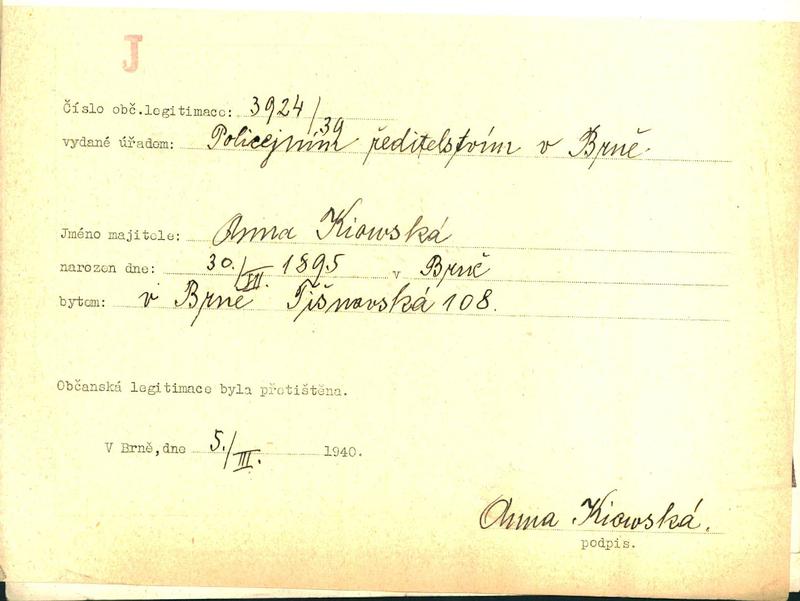 J
Číslo obč.legitimace: 3924/39
vydané úřadem: Policejním ředitelstvím v Brně.
Jméno majitele: Anna Kiowská
narozen dne: 30./VII. 1895 v Brně
bytom: v Brně Tišnovská 108.
Občanská legitimace byla přetištěna.
V Brně, dne 5./III. 1940.
Anna Kiowská.
podpis.